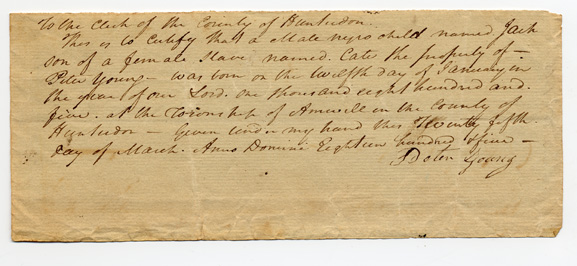 To the Clerk of the County of Hunterdon.
This is to Certify that a Male negro child named Jack
son of a female Slave, named. Cate the property of —
Peter Young — was born on the twelfth day of January in
the year of our Lord. one thousand eight hundred and.
five. at the Township of Amwell in the County of
Hunterdon — Given under my hand this Twenty fifth
day of March. Anno Domini Eighteen hundred & five —
Peter Young